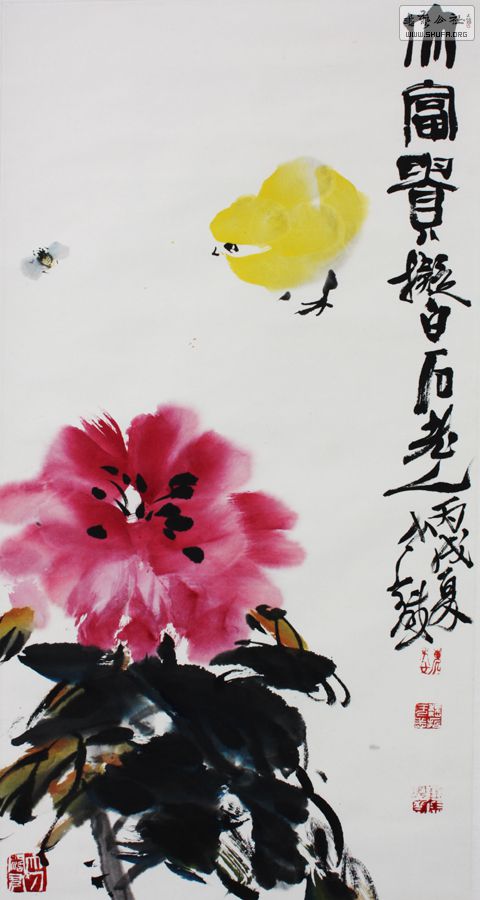 书法公社
WWW.SHUFA.ORG
大富貴擬白石老人
丙戌夏